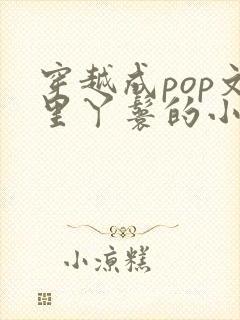 穿越成pop文
里丫鬟的小
小凉糕